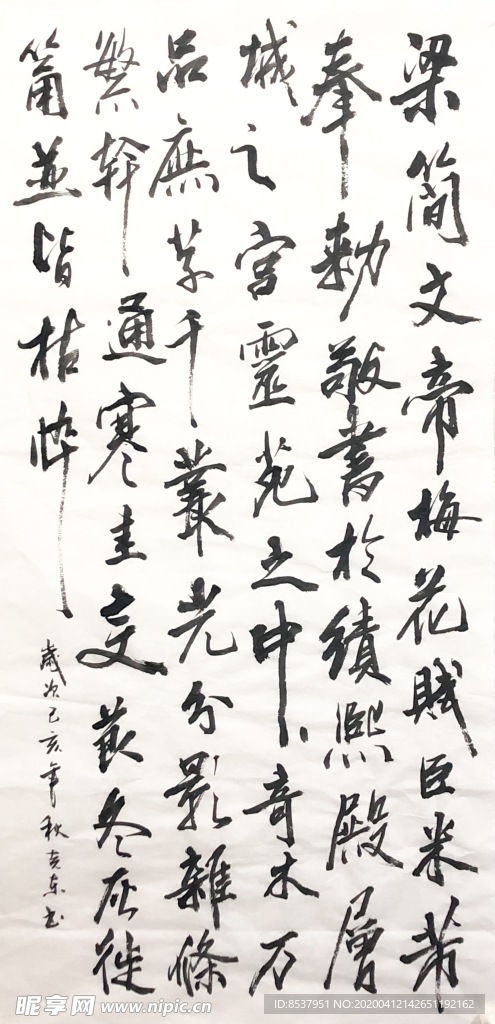 梁簡文帝梅花賦臣米芾
奉勅敬書於績熙殿層
城之宮靈苑之中奇木万
品庶草千叢光分影雜條
繁幹通寒圭变莭冬灰徙
筩並皆枯悴
歲次己亥年秋东书
昵享网 www.nipic.cn
ID:8537951 NO:20200412142651192162